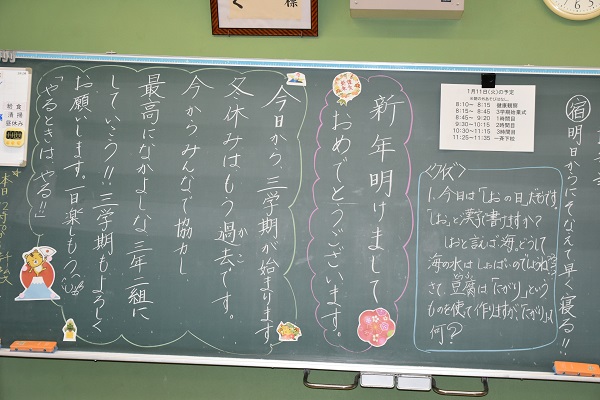 様
く
㊟宿 明日からにそなえて早く寝る!!
1月11日(火)の予定
8:10～ 8:15 健康観察
8:15～ 8:45 3学期始業式
8:45～ 9:20 1時間目
9:30～10:15 2時間目
10:30～11:15 3時間目
11:25～11:35 一斉下校
<クイズ>
1.今日は「しお」の日だもです。
「しお」と漢字で書けますか?
しおと言えば海。どうして
海の水はしょっぱいのでしょうね。
さて、豆腐は「にがり」という
ものを使って作りますが、「にがり」は
何?
新年明けまして
おめでとうございます。
今日から三学期が始まります。
冬休みはもう過去です。
かこ
今からみんなで協力し、
最高になかよしな三年二組に
していこう!!三学期もよろしく
お願いします。一日楽もう
「やるときは、やる!!」
給食
清掃
昼休み